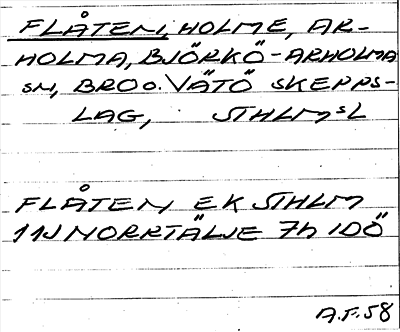 FLÅTEN, HOLME, AR-
HOLMA, BJÖRKÖ-ARHOLMA
SN, BRO o. VÄTÖ SKEPPS-
LAG, STHLMS L
FLÅTEN EK STHLM
11J NORRTÄLJE 7h IDÖ
A.F.58